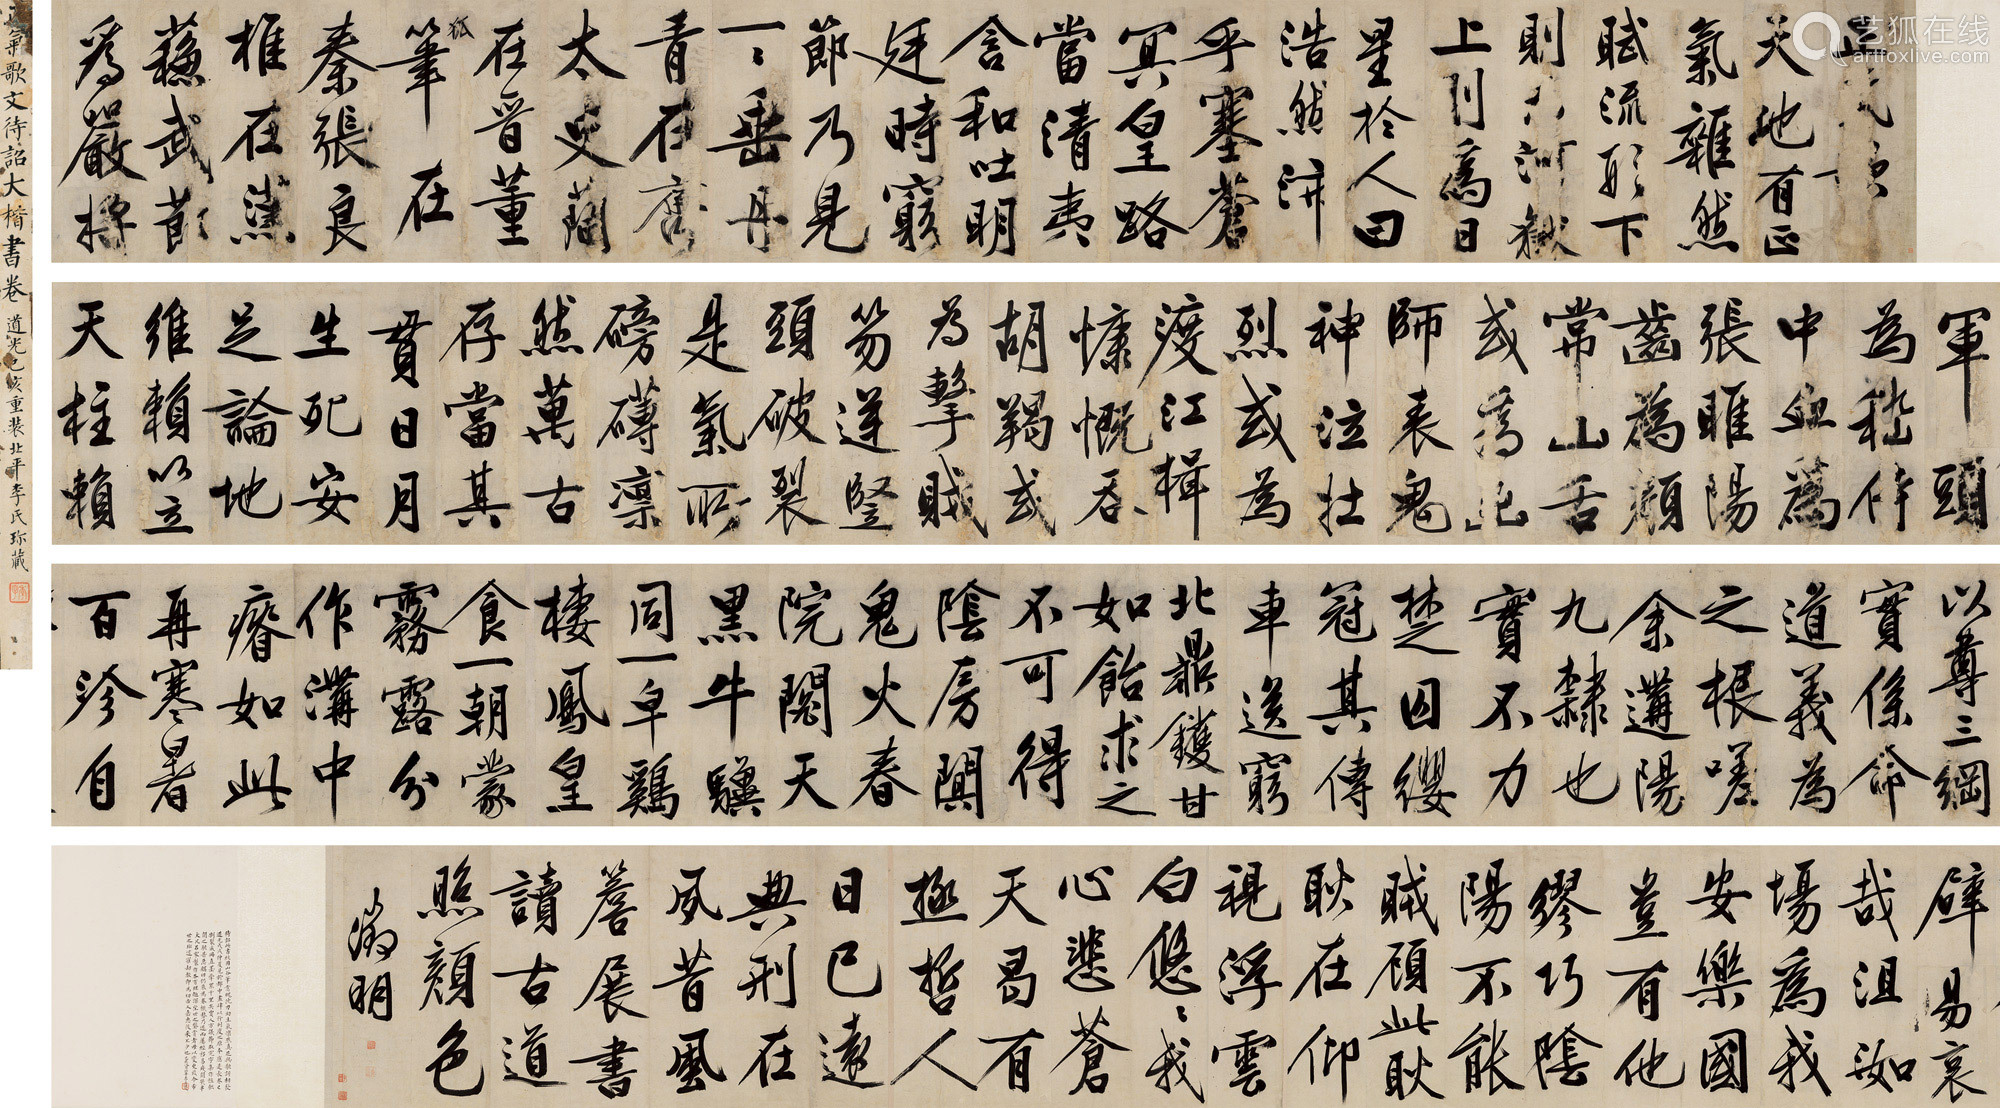 艺狐在线
artfoxlive.com
氣歌文待詔大楷書卷 道光己亥重裝北平李氏珍藏
天地有正
氣雜然
賦流形下
則為河嶽
上則為日
星於人曰
浩然沛
乎塞蒼
冥皇路
當清夷
含和吐明
廷時窮
節乃見
一〻垂丹
青在齊
太史簡
在晉董
狐筆在
秦張良
椎在漢
蘇武節
為嚴將
軍頭
為嵇侍
中血為
張睢陽
齒為顏
常山舌
或為出
師表鬼
神泣壯
烈或為
渡江楫
慷慨吞
胡羯或
為擊賊
笏逆豎
頭破裂
是氣所
磅礴凜
然萬古
存當其
貫日月
生死安
足論地
維賴以立
天柱賴
以尊三綱
實係命
道義為
之根嗟
余遘陽
九隸也
實不力
楚囚纓
冠其傳
車送窮
北鼎鑊甘
如飴求之
不可得
陰房闃
鬼火春
院閟天
黑牛驥
同一皁雞
棲鳳皇
食一朝蒙
霧露分
作溝中
瘠如此
再寒暑
百沴自
辟易哀
哉沮洳
場為我
安樂國
豈有他
繆巧陰
陽不能
賊顧此耿
耿在仰
視浮雲
白悠〻我
心悲蒼
天曷有
極哲人
日已遠
典刑在
夙昔風
簷展書
讀古道
照顏色
徵明